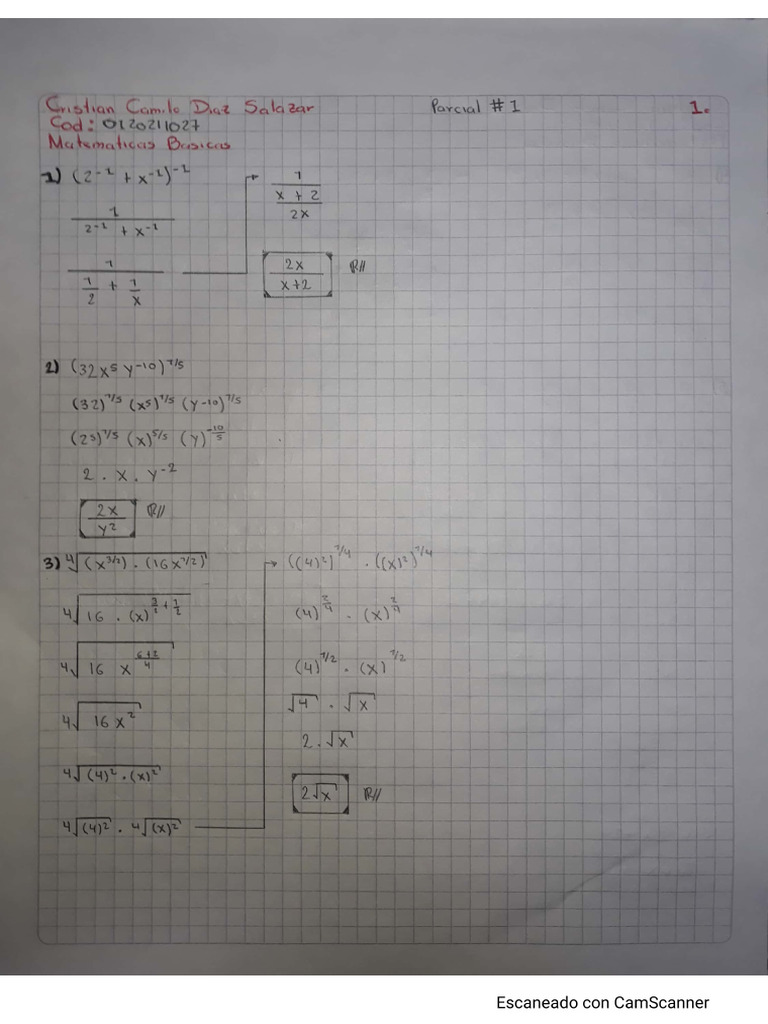 Cristian Camilo Diaz Salazar Parcial #1 1.
Cod: 0120211027
Matematicas Basicas
1) (2⁻¹ + x⁻¹)⁻¹
1 / (2⁻¹ + x⁻¹)
1 / (1/2 + 1/x)
1 / ((x + 2) / 2x)
2x / (x+2) R//
2) (32x⁵ y⁻¹⁰)^1/5
(32)^1/5 (x⁵)^1/5 (y-10)^1/5
(2⁵)^1/5 (x)^5/5 (y)^-10/5
2 . x . y⁻²
2x / y² R//
3) ⁴√((x^3/2) . (16x^1/2))
⁴√(16 . (x)^(3/2 + 1/2))
⁴√(16 x^((6+2)/4))
⁴√(16x²)
⁴√((4)² . (x)²)
⁴√((4)²) . ⁴√((x)²)
((4)²)^1/4 . ((x)²)^1/4
(4)^2/4 . (x)^2/4
(4)^1/2 . (x)^1/2
√4 . √x
2 . √x
2√x R//
Escaneado con CamScanner